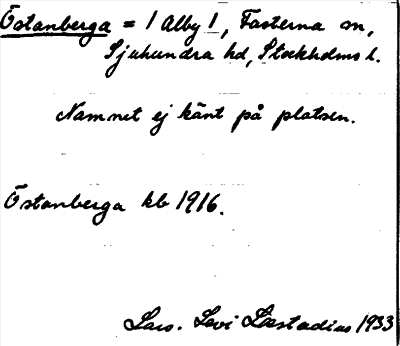 Östanberga = 1 Alby 1, Fasterna sn,
Sjuhundra hd, Stockholms l.
Namnet ej känt på platsen.
Östanberga kb 1916.
Lars. Levi Læstadius 1933